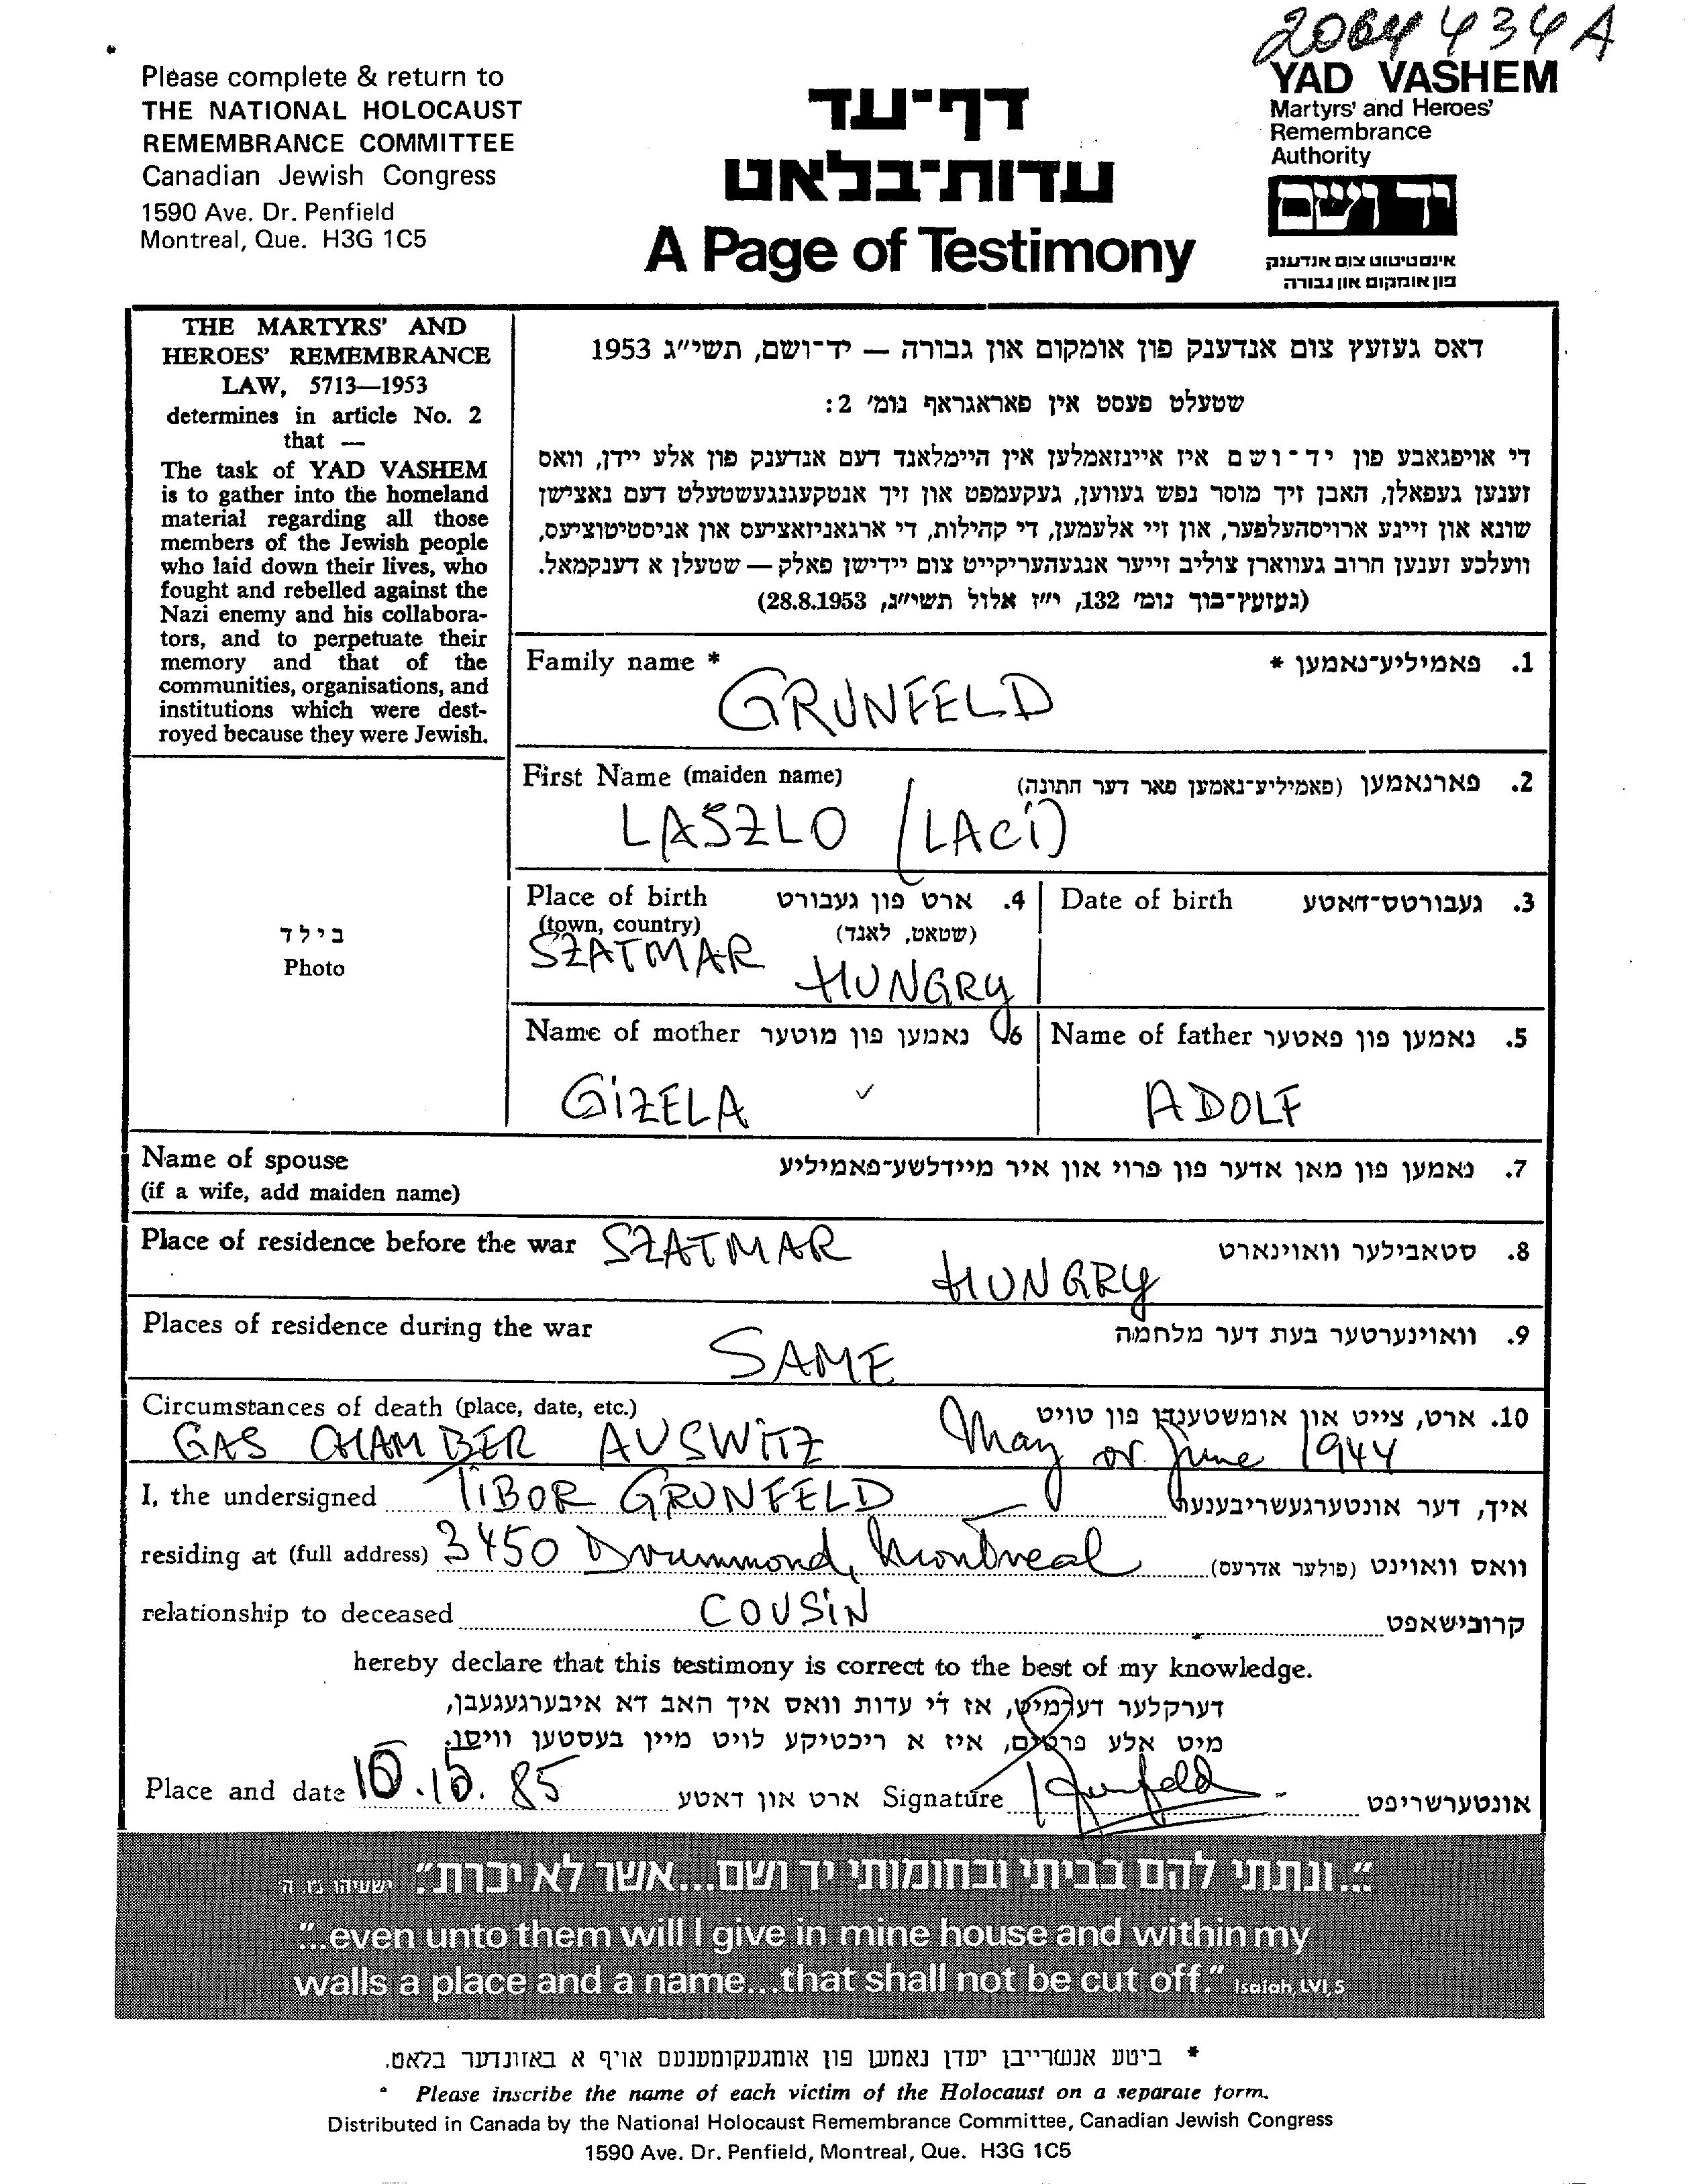 2064 434A
Please complete & return to
THE NATIONAL HOLOCAUST
REMEMBRANCE COMMITTEE
Canadian Jewish Congress
1590 Ave. Dr. Penfield
Montreal, Que. H3G 1C5
דף־עד
עדות־בלאט
A Page of Testimony
YAD VASHEM
Martyrs' and Heroes'
Remembrance
Authority
יד ושם
אינסטיטוט צום אנדענק
פון אומקום און גבורה
THE MARTYRS' AND
HEROES' REMEMBRANCE
LAW, 5713—1953
determines in article No. 2
that —
The task of YAD VASHEM
is to gather into the homeland
material regarding all those
members of the Jewish people
who laid down their lives, who
fought and rebelled against the
Nazi enemy and his collabora-
tors, and to perpetuate their
memory and that of the
communities, organisations, and
institutions which were dest-
royed because they were Jewish.
דאס געזעץ צום אנדענק פון אומקום און גבורה — יד־ושם, תשי״ג 1953
שטעלט פעסט אין פאראגראף נומ׳ 2:
די אויפגאבע פון יד־ושם איז איינזאמלען אין היימלאנד דעם אנדענק פון אלע יידן, וואס
זענען געפאלן, האבן זיך מוסר נפש געווען, געקעמפט און זיך אנטקעגנגעשטעלט דעם נאצישן
שונא און זיינע ארויסהעלפער, און זיי אלעמען, די קהילות, די ארגאניזאציעס און אניסטיטוציעס,
וועלכע זענען חרוב געווארן צוליב זייער אנגעהעריקייט צום יידישן פאלק — שטעלן א דענקמאל.
(געזעץ־בוך נומ׳ 132, י״ז אלול תשי״ג, 28.8.1953)
בילד
Photo
Family name * פאמיליע־נאמען * .1
GRUNFELD
First Name (maiden name) פארנאמען (פאמיליע־נאמען פאר דער חתונה) .2
LASZLO (LACI)
Place of birth ארט פון געבורט .4
(town, country) (שטאט, לאנד)
SZATMAR
HUNGRY
Date of birth געבורטס־דאטע .3
Name of mother נאמען פון מוטער 6
GIZELA
Name of father נאמען פון פאטער .5
ADOLF
Name of spouse נאמען פון מאן אדער פון פרוי און איר מיידלשע־פאמיליע .7
(if a wife, add maiden name)
Place of residence before the war SZATMAR סטאבילער וואוינארט .8
HUNGRY
Places of residence during the war וואוינערטער בעת דער מלחמה .9
SAME
Circumstances of death (place, date, etc.) ארט, צייט און אומשטענדן פון טויט .10
GAS CHAMBER AUSWITZ May or June 1944
I, the undersigned TIBOR GRUNFELD איך, דער אונטערגעשריבענער
residing at (full address) 3450 Drummond, Montreal וואס וואוינט (פולער אדרעס)
relationship to deceased COUSIN קרובישאפט
hereby declare that this testimony is correct to the best of my knowledge.
דערקלער דערמיט, אז די עדות וואס איך האב דא איבערגעגעבן,
מיט אלע פרטים, איז א ריכטיקע לויט מיין בעסטען וויסן.
Place and date 85 ארט און דאטע Signature Grunfeld אונטערשריפט
"...ונתתי להם בביתי ובחומותי יד ושם...אשר לא יכרת." ישעיהו נו, ה׳
"...even unto them will I give in mine house and within my
walls a place and a name...that shall not be cut off." Isaiah, LVI, 5
* ביטע אנשרייבן יעדן נאמען פון אומגעקומענעם אויף א באזונדער בלאט.
* Please inscribe the name of each victim of the Holocaust on a separate form.
Distributed in Canada by the National Holocaust Remembrance Committee, Canadian Jewish Congress
1590 Ave. Dr. Penfield, Montreal, Que. H3G 1C5